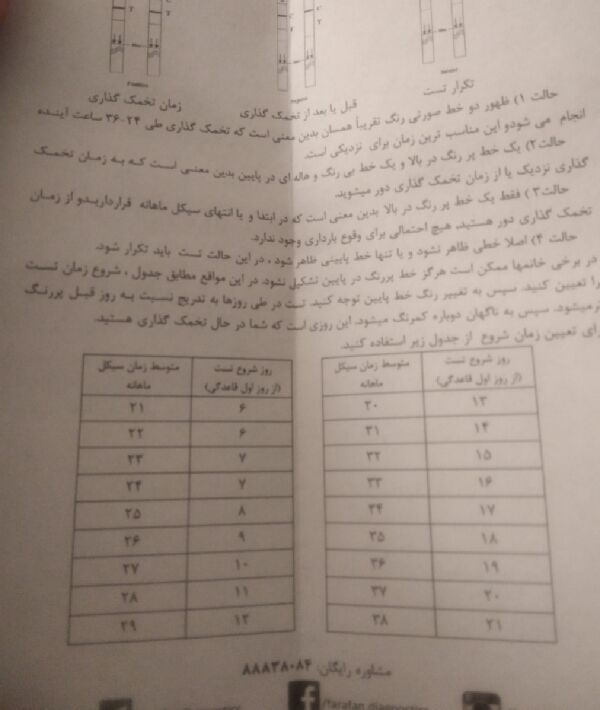 C
T
C
T
زمان تخمک گذاری
قبل یا بعد از تخمک گذاری
تکرار تست
حالت ۱) ظهور دو خط صورتی رنگ تقریباً همسان بدین معنی است که تخمک گذاری طی ۲۴-۳۶ ساعت آینده
انجام می شود و این مناسب ترین زمان برای نزدیکی است.
حالت ۲) یک خط پر رنگ در بالا و یک خط بی رنگ و هاله ای در پایین بدین معنی است که به زمان تخمک
گذاری نزدیک یا از زمان تخمک گذاری دور میشوید.
حالت ۳) فقط یک خط پر رنگ در بالا بدین معنی است که در ابتدا و یا انتهای سیکل ماهانه قرار دارید و از زمان
تخمک گذاری دور هستید، هیچ احتمالی برای وقوع بارداری وجود ندارد.
حالت ۴) اصلا خطی ظاهر نشود و یا تنها خط پایینی ظاهر شود، در این حالت تست باید تکرار شود.
در برخی خانمها ممکن است هرگز خط پررنگ در پایین تشکیل نشود. در این مواقع مطابق جدول، شروع زمان تست
را تعیین کنید. سپس به تغییر رنگ خط پایین توجه کنید. تست در طی روزها به تدریج نسبت به روز قبل پررنگ
تر میشود. سپس به ناگهان دوباره کمرنگ میشود. این روزی است که شما در حال تخمک گذاری هستید.
برای تعیین زمان شروع از جدول زیر استفاده کنید.
روز شروع تست (از روز اول قاعدگی) متوسط زمان سیکل ماهانه
۱۳ ۳۰
۱۴ ۳۱
۱۵ ۳۲
۱۶ ۳۳
۱۷ ۳۴
۱۸ ۳۵
۱۹ ۳۶
۲۰ ۳۷
۲۱ ۳۸
روز شروع تست (از روز اول قاعدگی) متوسط زمان سیکل ماهانه
۶ ۲۱
۶ ۲۲
۷ ۲۳
۷ ۲۴
۸ ۲۵
۹ ۲۶
۱۰ ۲۷
۱۱ ۲۸
۱۲ ۲۹
مشاوره رایگان: ۸۸۸۳۸۰۸۴